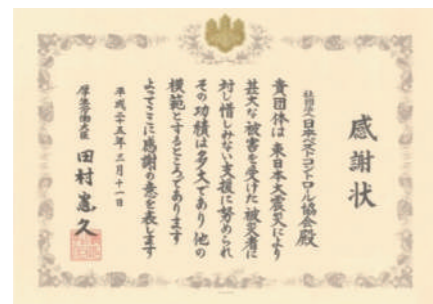 感謝状
社団法人日本ペストコントロール協会殿
貴団体は東日本大震災により
甚大な被害を受けた被災者に
対し惜しみない支援に努められ
その功績は多大であり他の
模範とするところであります
よってここに感謝の意を表します
平成二十五年三月十一日
厚生労働大臣 田村憲久